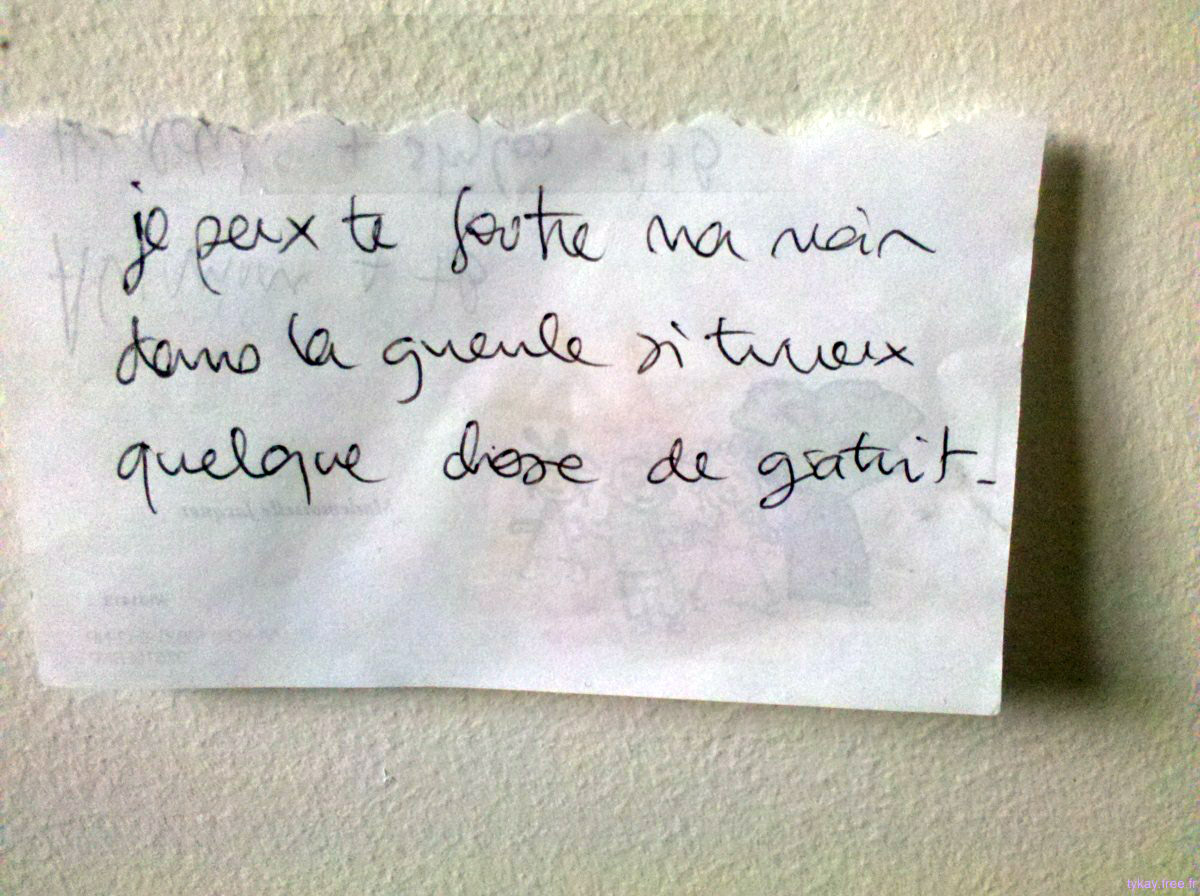 je peux te foutre ma main
dans la gueule si tu veux
quelque chose de gratuit_
Mademoiselle Jacquet
tykay.free.fr